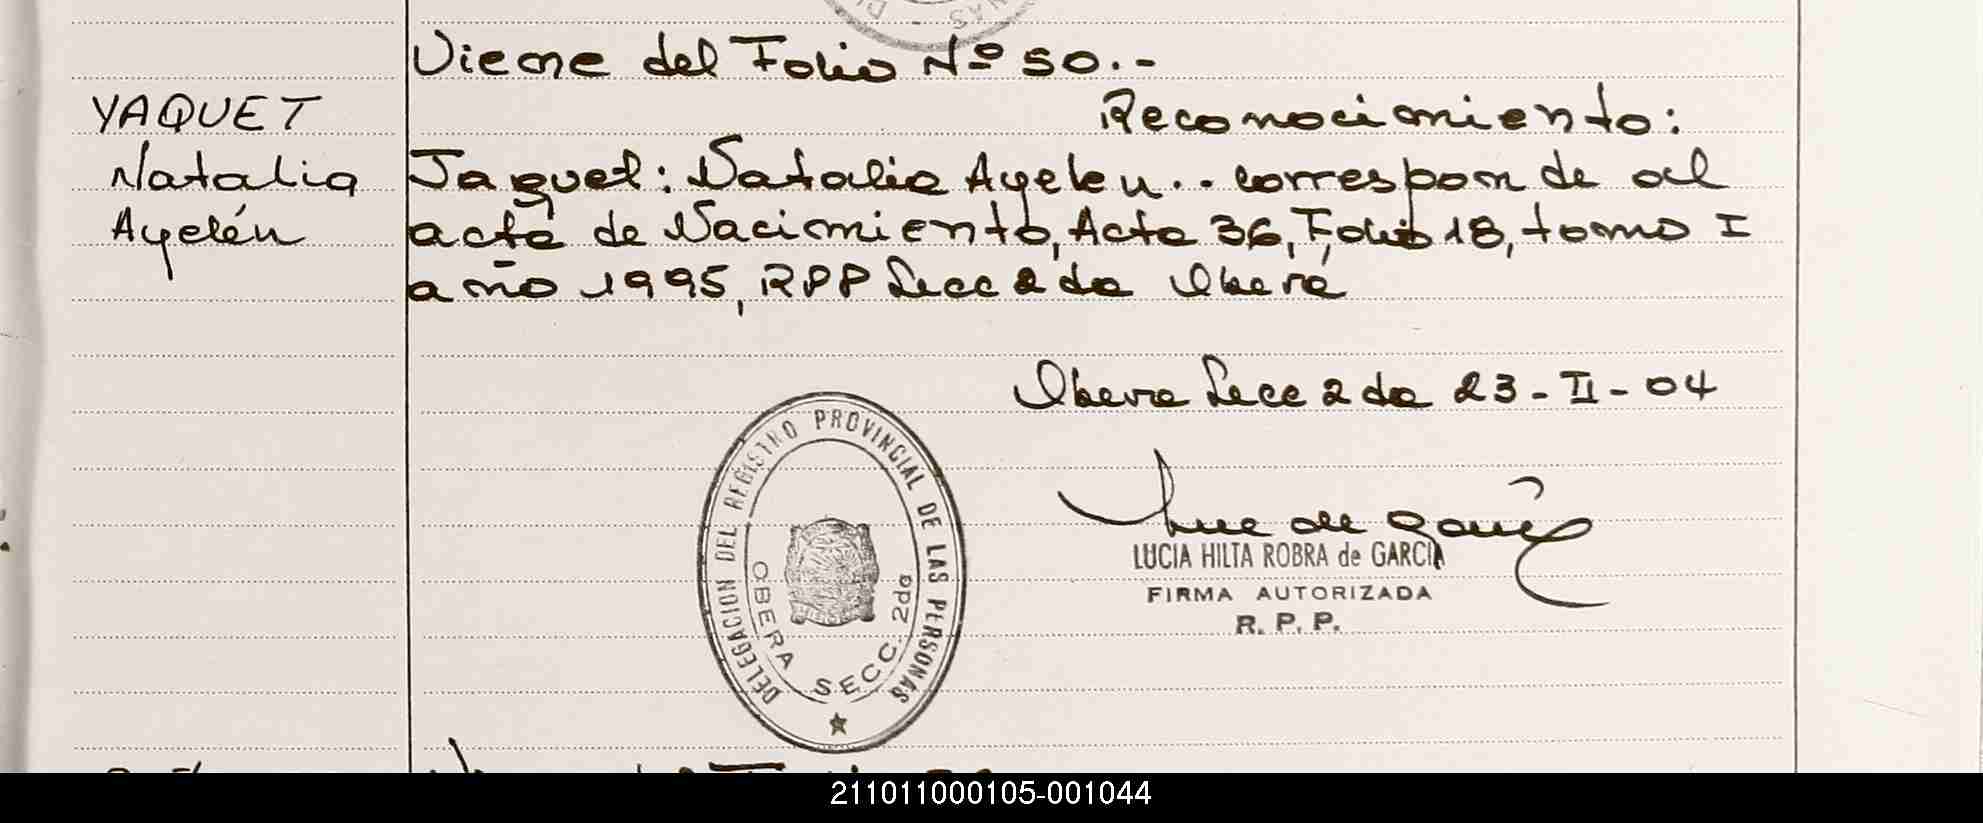 Viene del Folio Nº 50.-
YAQUET
Natalia
Ayelén
Reconocimiento:
Jaquet: Natalia Ayelen.. corresponde al
acta de Nacimiento, Acta 36, Folio 18, tomo I
año 1995, RPP Secc 2da Oberá
Obera Secc 2da 23-II-04
DELEGACION DEL REGISTRO PROVINCIAL DE LAS PERSONAS
OBERA SECC. 2da
LUCIA HILTA ROBRA de GARCIA
FIRMA AUTORIZADA
R. P. P.
211011000105-001044